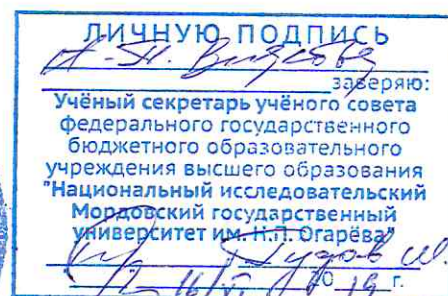 ЛИЧНУЮ ПОДПИСЬ
заверяю:
Учёный секретарь учёного совета
федерального государственного
бюджетного образовательного
учреждения высшего образования
"Национальный исследовательский
Мордовский государственный
университет им. Н.П. Огарёва"
16 20 19 г.